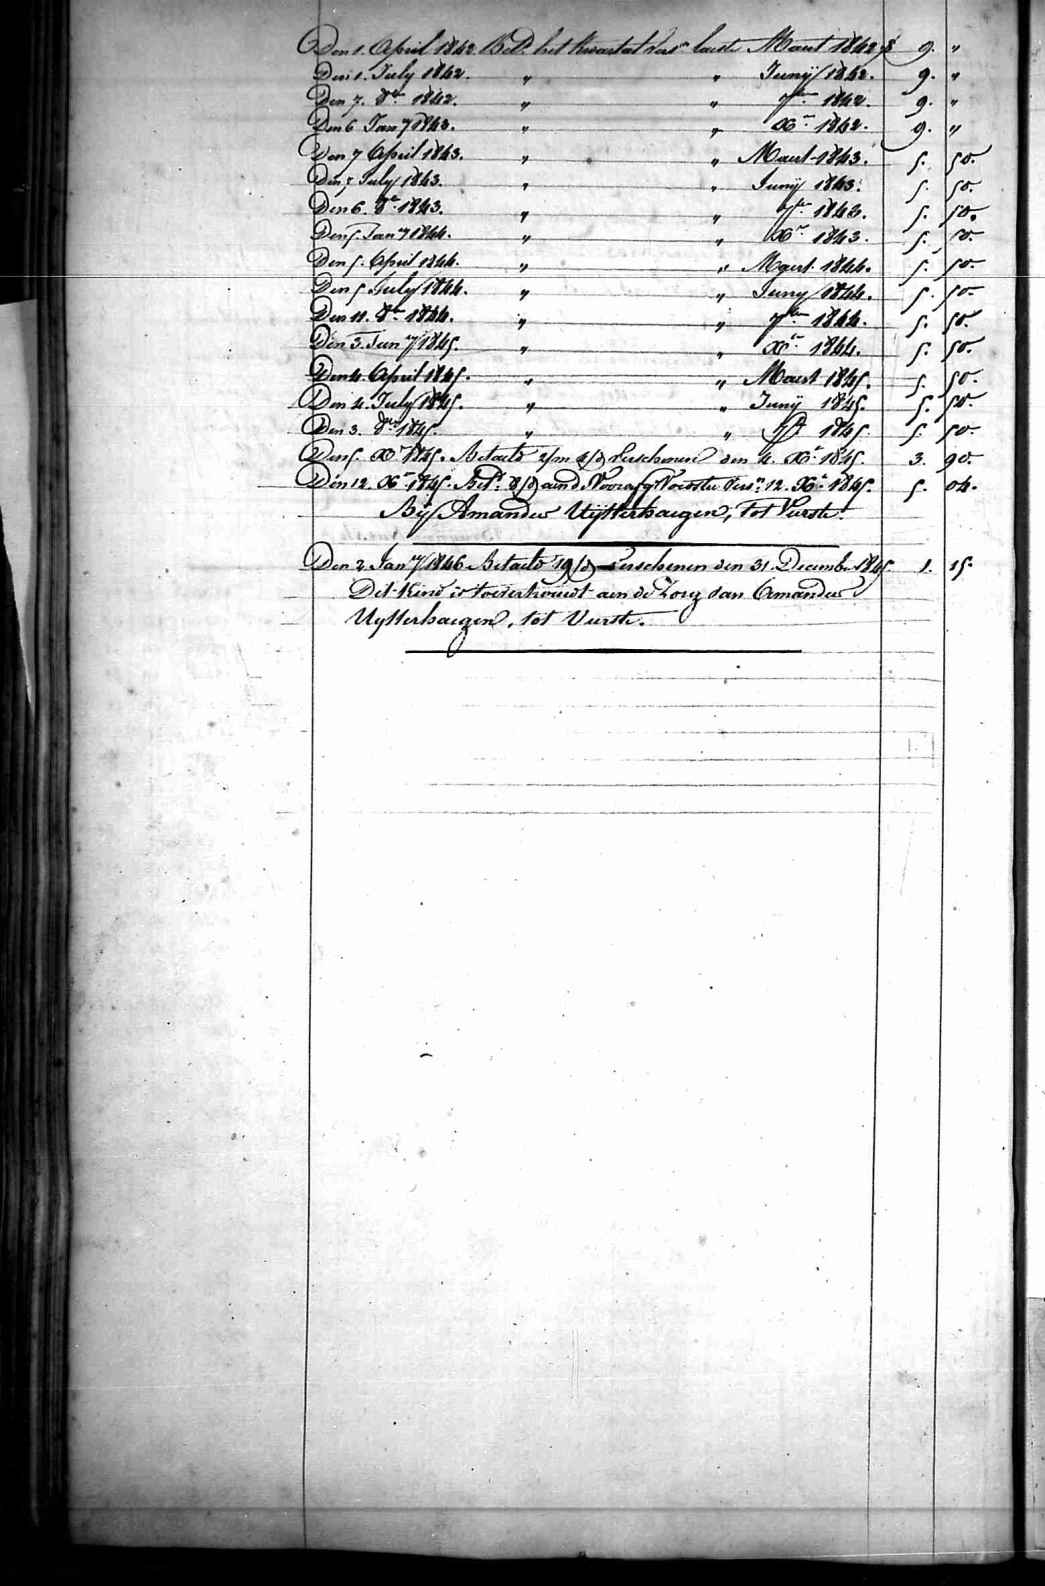 Den 1. April 1842 Betd. het kwartaal vers.n laeste Maert 1842 f 9. "
Den 1. July 1842. " " Junij 1842. 9. "
Den 7. 8ber 1842. " " 7ber 1842. 9. "
Den 6 Jany 1843. " " Xber 1842. 9. "
Den 7 April 1843. " " Maert 1843. 5. 50.
Den 5 July 1843. " " Junij 1843. 5. 50.
Den 6. 8ber 1843. " " 7ber 1843. 5. 50.
Den 5. Jany 1844. " " Xber 1843. 5. 50.
Den 5. April 1844. " " Maert 1844. 5. 50.
Den 5 July 1844. " " Juny 1844. 5. 50.
Den 11. 8ber 1844. " " 7ber 1844. 5. 50.
Den 3. Jany 1845. " " Xber 1844. 5. 50.
Den 4. April 1845. " " Maert 1845. 5. 50.
Den 4. July 1845. " " Junij 1845. 5. 50.
Den 3. 8ber 1845. " " 1845. 5. 50.
Den 5. Xber 1845. Betaeld 2/m 4/d verschenen den 4. Xber 1845. 3. 90.
Den 12. Xber 1845. Betd. 8/d aend Voorafg Voedster vers.n 12. Xber 1845. 5. 04.
Bij Amandus Uijtterhaegen, tot Vurste.
Den 2 Jany 1846 Betaeld 19/d verschenen den 31 December 1845 1. 15.
Dit kind is toevertrouwt aen de Zorg van Amandus
Uytterhaegen, tot Vurste.